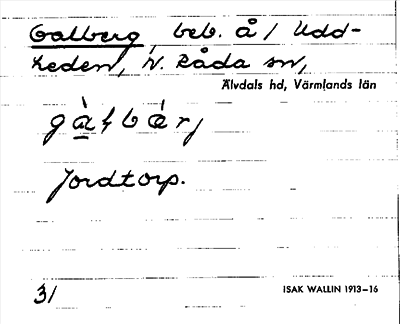 Galberg, beb. å / Udd-
heden, N. Råda sn,
Älvdals hd, Värmlands län
Jordtorp.
31
ISAK WALLIN 1913–16